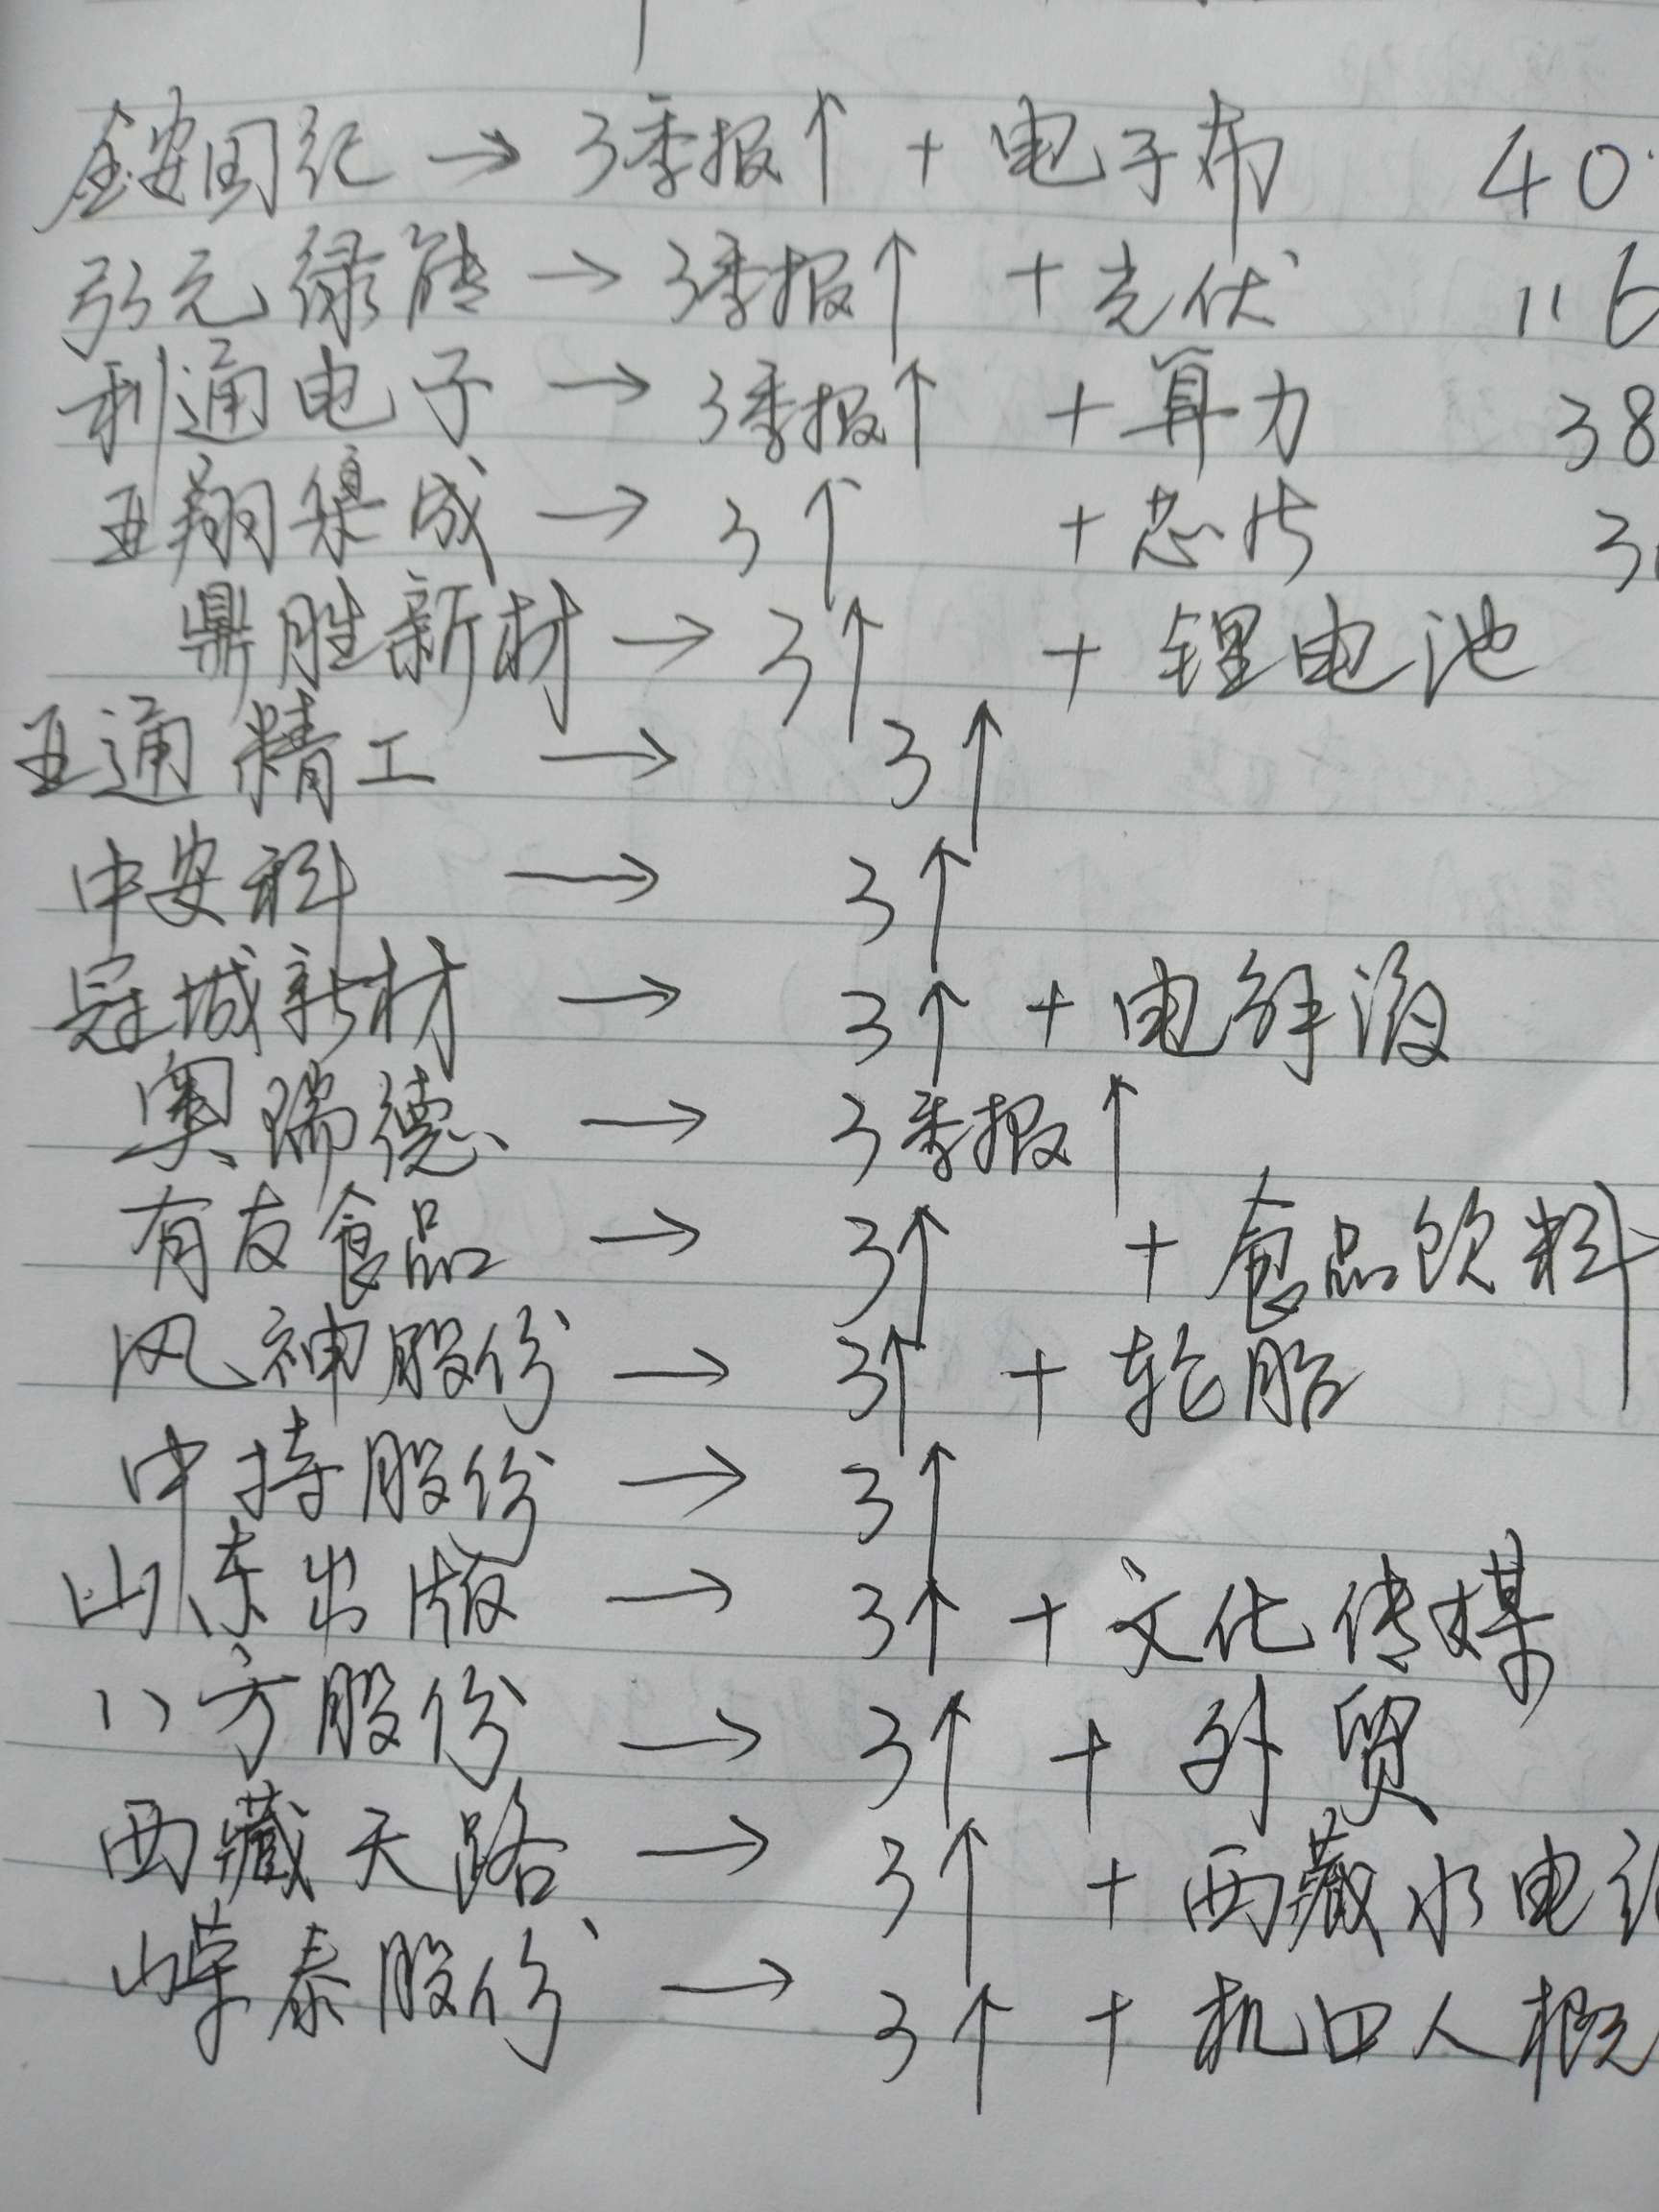 金安国纪 → 3季报↑ + 电子布 40
弘元绿能 → 3季报↑ + 光伏 116
利通电子 → 3季报↑ + 算力 38
亚翔集成 → 3↑ + 芯片 3
鼎胜新材 → 3↑ + 锂电池
亚通精工 → 3↑
中安科 → 3↑
冠城新材 → 3↑ + 电解液
奥瑞德 → 3季报↑
有友食品 → 3↑ + 食品饮料
风神股份 → 3↑ + 轮胎
中持股份 → 3↑
山东出版 → 3↑ + 文化传媒
八方股份 → 3↑ + 外贸
西藏天路 → 3↑ + 西藏水电
嵘泰股份 → 3↑ + 机口人概